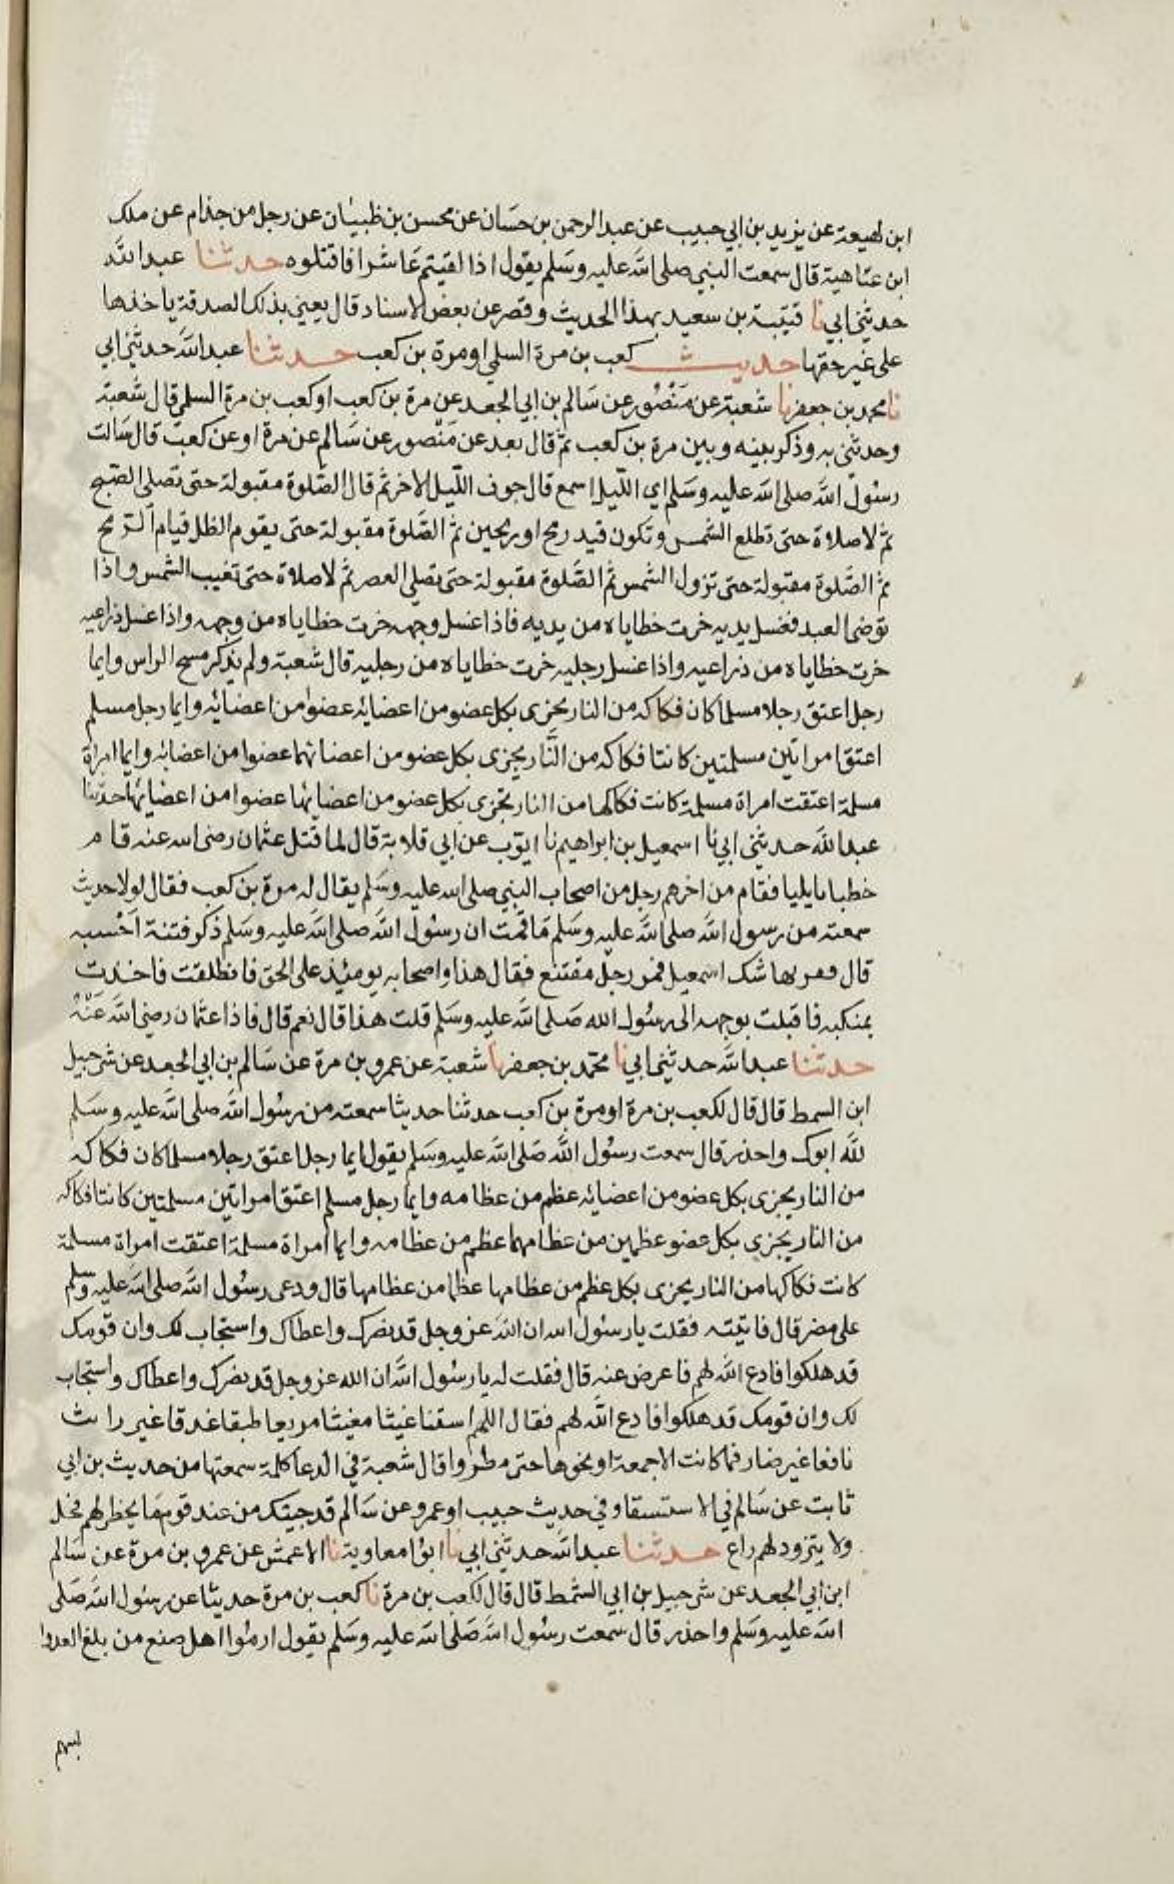 ابن لهيعة عن يزيد بن ابي حبيب عن عبد الرحمن بن حسان عن مخيس بن ظبيان عن رجل من جذام عن ملك
ابن عتاهية قال سمعت النبي صلى الله عليه وسلم يقول اذا لقيتم عاشرا فاقتلوه حدثنا عبد الله
حدثني ابي نا قتيبة بن سعيد بهذا الحديث وقصر عن بعض الاسناد قال يعني بذلك الصدقة ياخذها
على غير حقها حديث كعب بن مرة السلمي او مرة بن كعب حدثنا عبد الله حدثني ابي
نا محمد بن جعفر نا شعبة عن منصور عن سالم بن ابي الجعد عن مرة بن كعب او كعب بن مرة السلمي قال شعبة
وحدثني به وذكر بينه وبين مرة بن كعب ثم قال بعد عن منصور عن سالم عن مرة او عن كعب قال سالت
رسول الله صلى الله عليه وسلم اي الليل اسمع قال جوف الليل الاخر ثم قال الصلوة مقبولة حتى تصلي الصبح
ثم لا صلاة حتى تطلع الشمس وتكون قيد رمح او رمحين ثم الصلوة مقبولة حتى يقوم الظل قيام الرمح
ثم الصلوة مقبولة حتى تزول الشمس ثم الصلوة مقبولة حتى تصلي العصر ثم لا صلاة حتى تغيب الشمس واذا
توضى العبد فغسل يديه خرت خطاياه من يديه فاذا غسل وجهه خرت خطاياه من وجهه واذا غسل ذراعيه
خرت خطاياه من ذراعيه واذا غسل رجليه خرت خطاياه من رجليه قال شعبة ولم يذكر مسح الراس وايما
رجل اعتق رجلا مسلما كان فكاكه من النار يجزى بكل عضو من اعضائه عضوا من اعضائه وايما رجل مسلم
اعتق امراتين مسلمتين كانتا فكاكه من النار يجزى بكل عضو من اعضائهما عضوا من اعضائه وايما امراة
مسلمة اعتقت امراة مسلمة كانت فكاكها من النار تجزى بكل عضو من اعضائها عضوا من اعضائها حدثنا
عبد الله حدثني ابي نا اسمعيل بن ابراهيم نا ايوب عن ابي قلابة قال لما قتل عثمان رضي الله عنه قام
خطبا بايليا فقام من اخرهم رجل من اصحاب النبي صلى الله عليه وسلم يقال له مرة بن كعب فقال لولا حديث
سمعته من رسول الله صلى الله عليه وسلم ما قمت ان رسول الله صلى الله عليه وسلم ذكر فتنة احسبه
قال فقربها شك اسمعيل فمر رجل مقتنع فقال هذا واصحابه يومئذ على الحق فانطلقت فاخذت
بمنكبه فاقبلت بوجهه الى رسول الله صلى الله عليه وسلم قلت هذا قال نعم قال فاذا عثمان رضي الله عنه
حدثنا عبد الله حدثني ابي نا محمد بن جعفر نا شعبة عن عمرو بن مرة عن سالم بن ابي الجعد عن شرحبيل
ابن السمط قال قال لكعب بن مرة او مرة بن كعب حدثنا حديثا سمعته من رسول الله صلى الله عليه وسلم
لله ابوك واحذر قال سمعت رسول الله صلى الله عليه وسلم يقول ايما رجل اعتق رجلا مسلما كان فكاكه
من النار يجزى بكل عضو من اعضائه عظم من عظامه وايما رجل مسلم اعتق امراتين مسلمتين كانتا فكاكه
من النار يجزى بكل عضو عظمين من عظامهما عظم من عظامه وايما امراة مسلمة اعتقت امراة مسلمة
كانت فكاكها من النار يجزى بكل عظم من عظامها عظما من عظامها قال ودعى رسول الله صلى الله عليه وسلم
على مضر قال فاتيته فقلت يا رسول الله ان الله عز وجل قد نصرك واعطاك واستجاب لك وان قومك
قد هلكوا فادع الله لهم فاعرض عنه قال فقلت له يا رسول الله ان الله عز وجل قد نصرك واعطاك واستجاب
لك وان قومك قد هلكوا فادع الله لهم فقال اللهم اسقنا غيثا مغيثا مريعا طبقا غدقا غير رائث
نافعا غير ضار فما كانت الا جمعة او نحوها حتى مطروا قال شعبة في الدعا كلمة سمعتها من حديث بن ابي
ثابت عن سالم في الاستسقا وفي حديث حبيب او عمرو عن سالم قد جيتك من عند قوم ما يخطر لهم فحل
ولا يتزود لهم راع حدثنا عبد الله حدثني ابي نا ابوا معاوية نا الاعمش عن عمرو بن مرة عن سالم
ابن ابي الجعد عن شرحبيل بن ابي السمط قال قال لكعب بن مرة نا كعب بن مرة حديثا عن رسول الله صلى
الله عليه وسلم واحذر قال سمعت رسول الله صلى الله عليه وسلم يقول ارموا اهل صنع من بلغ العدوا
بسهم